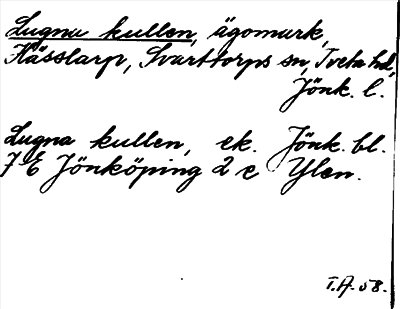 Lugna kullen, ägomark,
Hässlarp, Svarttorps sn, Tveta hd,
Jönk. l.
Lugna kullen, ek. Jönk. bl.
7 E Jönköping 2 c Ylen.
T.A. 58.